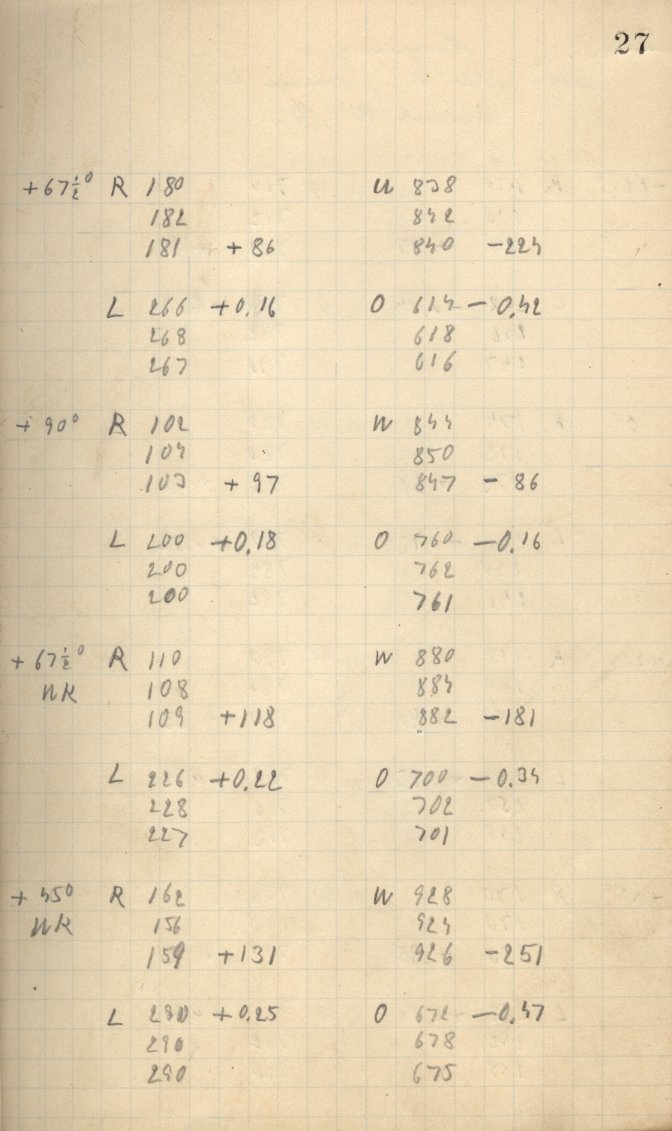 27
+67½° R 180 W 838
182 842
181 +86 840 -224
L 266 +0,16 O 614 -0,42
268 618
267 616
+90° R 102 W 844
104 850
103 +97 847 -86
L 200 +0,18 O 760 -0,16
200 762
200 761
+67½° R 110 W 880
NK 108 884
109 +118 882 -181
L 226 +0,22 O 700 -0,34
228 702
227 701
+45° R 162 W 928
NK 156 924
159 +131 926 -251
L 290 +0,25 O 672 -0,47
290 678
290 675